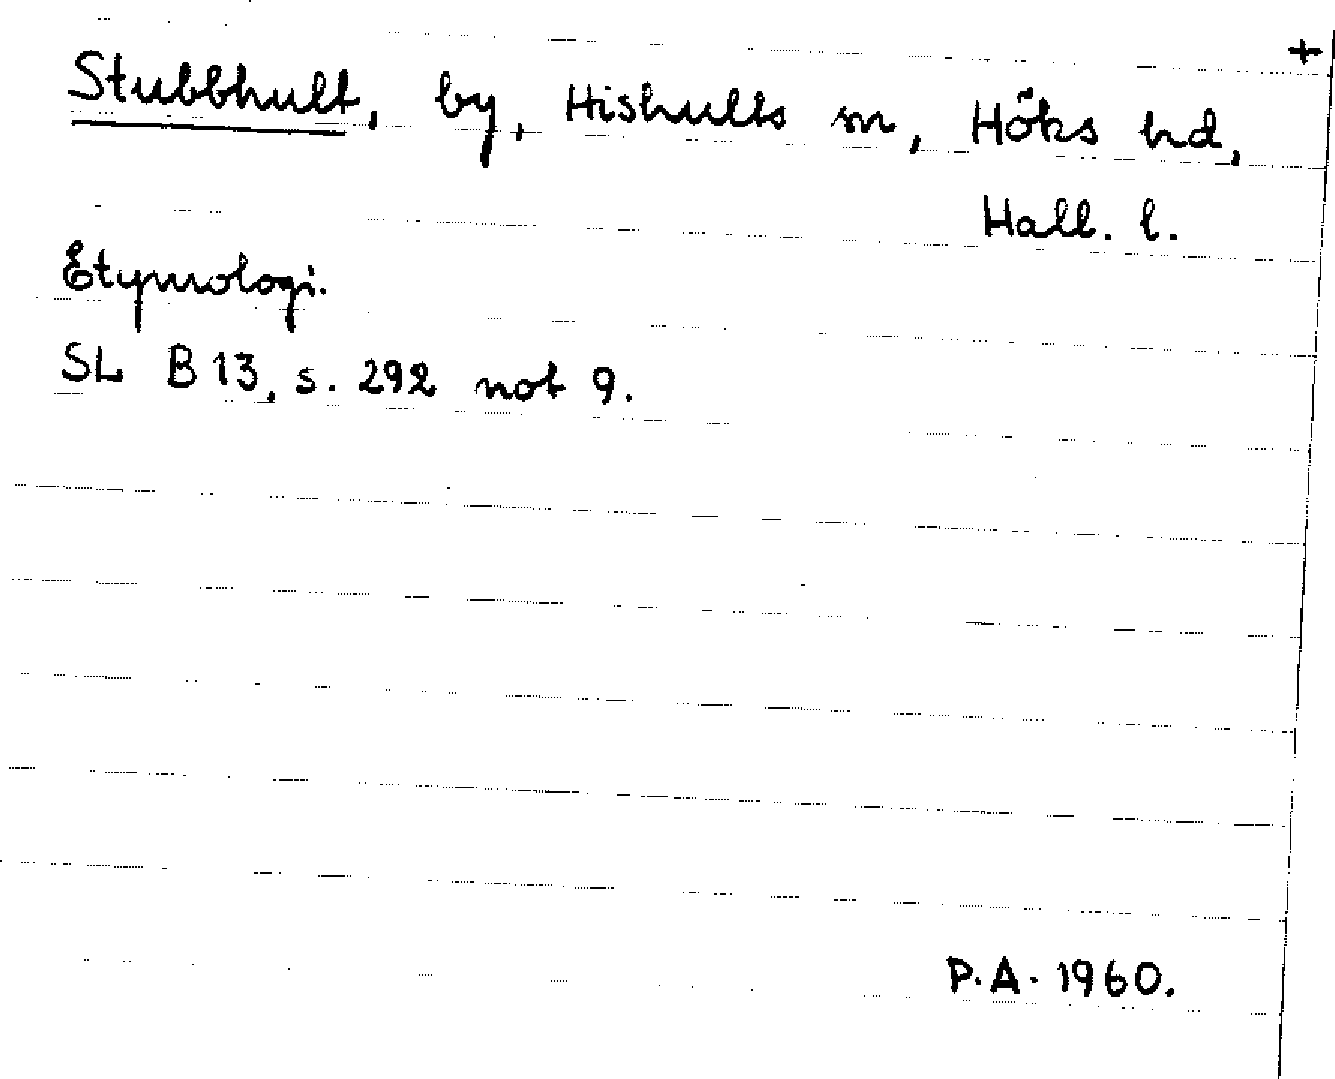 +
Stubbhult, by, Hishults sn, Höks hd,
Hall. l.
Etymologi.
SL B 13, s. 292 not 9.
P.A. 1960.